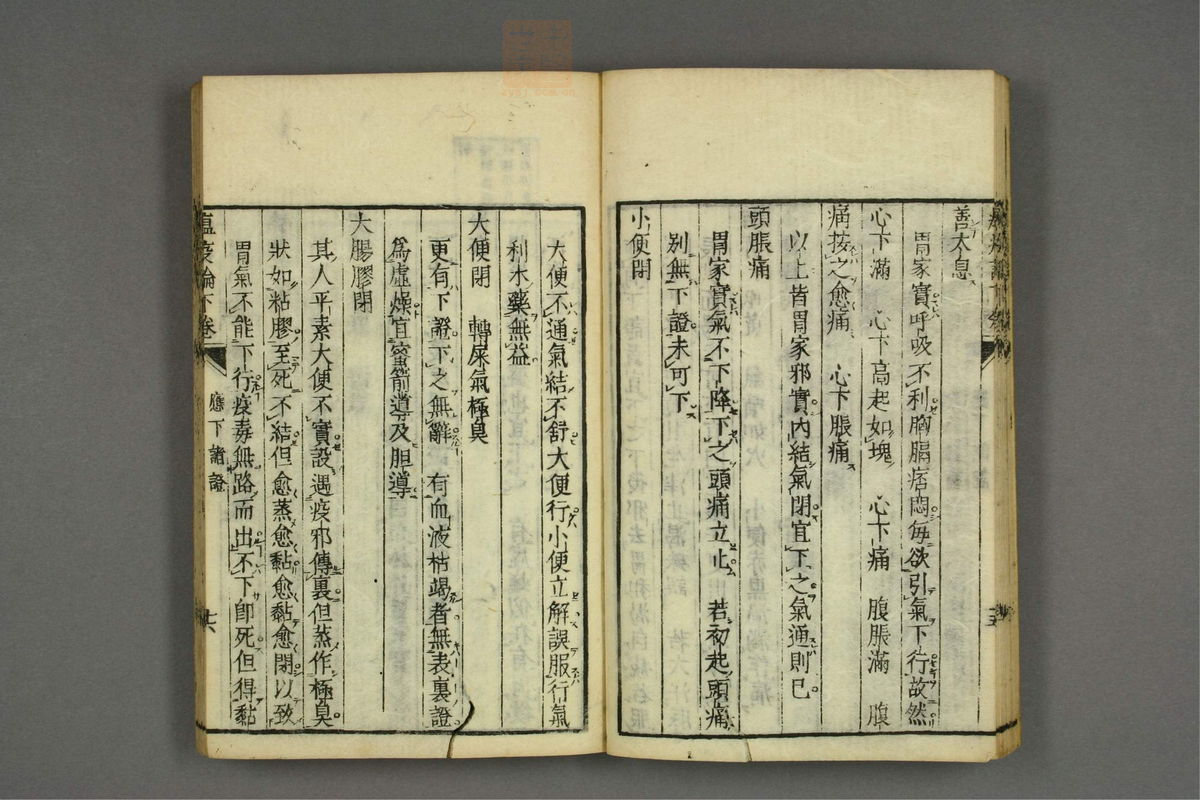 善太息
胃家實呼吸不利胸膈痞悶每欲引氣下行故然
心下滿　心下高起如塊　心下痛　腹脹滿　腹
痛按之愈痛　心下脹痛
以上皆胃家邪實內結氣閉宜下之氣通則已
頭脹痛
胃家實氣不下降下之頭痛立止　若初起頭痛
別無下證未可下
小便閉
大便不通氣結不舒大便行小便立解誤服行氣
利水藥無益
大便閉　轉屎氣極臭
更有下證下之無辭　有血液枯竭者無表裏證
爲虛燥宜蜜箭導及胆導
大腸膠閉
其人平素大便不實設遇疫邪傳裏但蒸作極臭
狀如粘膠至死不結但愈蒸愈黏愈黏愈閉以致
胃氣不能下行疫毒無路而出不下即死但得黏
瘟疫論下卷　應下諸證　十六